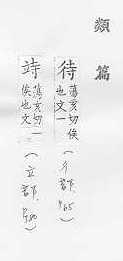 類篇
待蕩亥切俟
也文一
(彳部
P.65)
蕩亥切
俟也文一
(立部